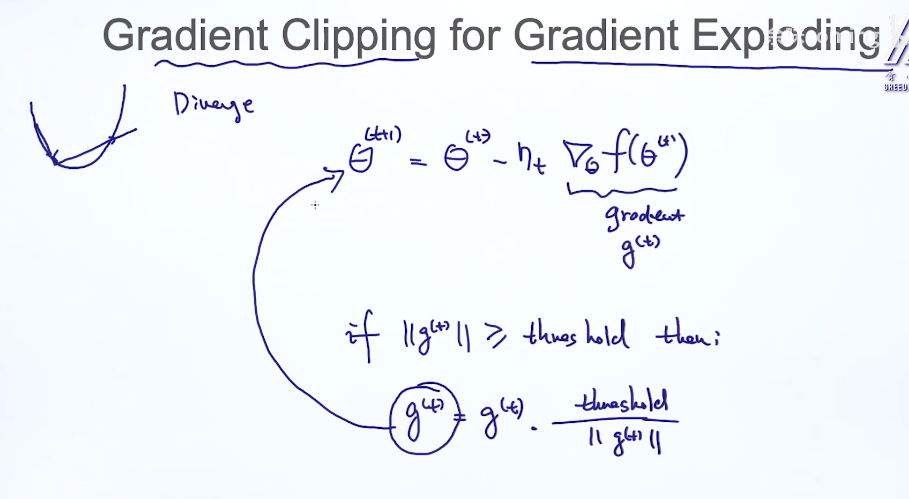 Gradient Clipping for Gradient Exploding
GREED
Diverge
θ^(t+1) = θ^(t) - η_t ∇_θ f(θ^(t))
gradient
g^(t)
if ||g^(t)|| ⩾ threshold then:
g^(t) = g^(t) · threshold / ||g^(t)||